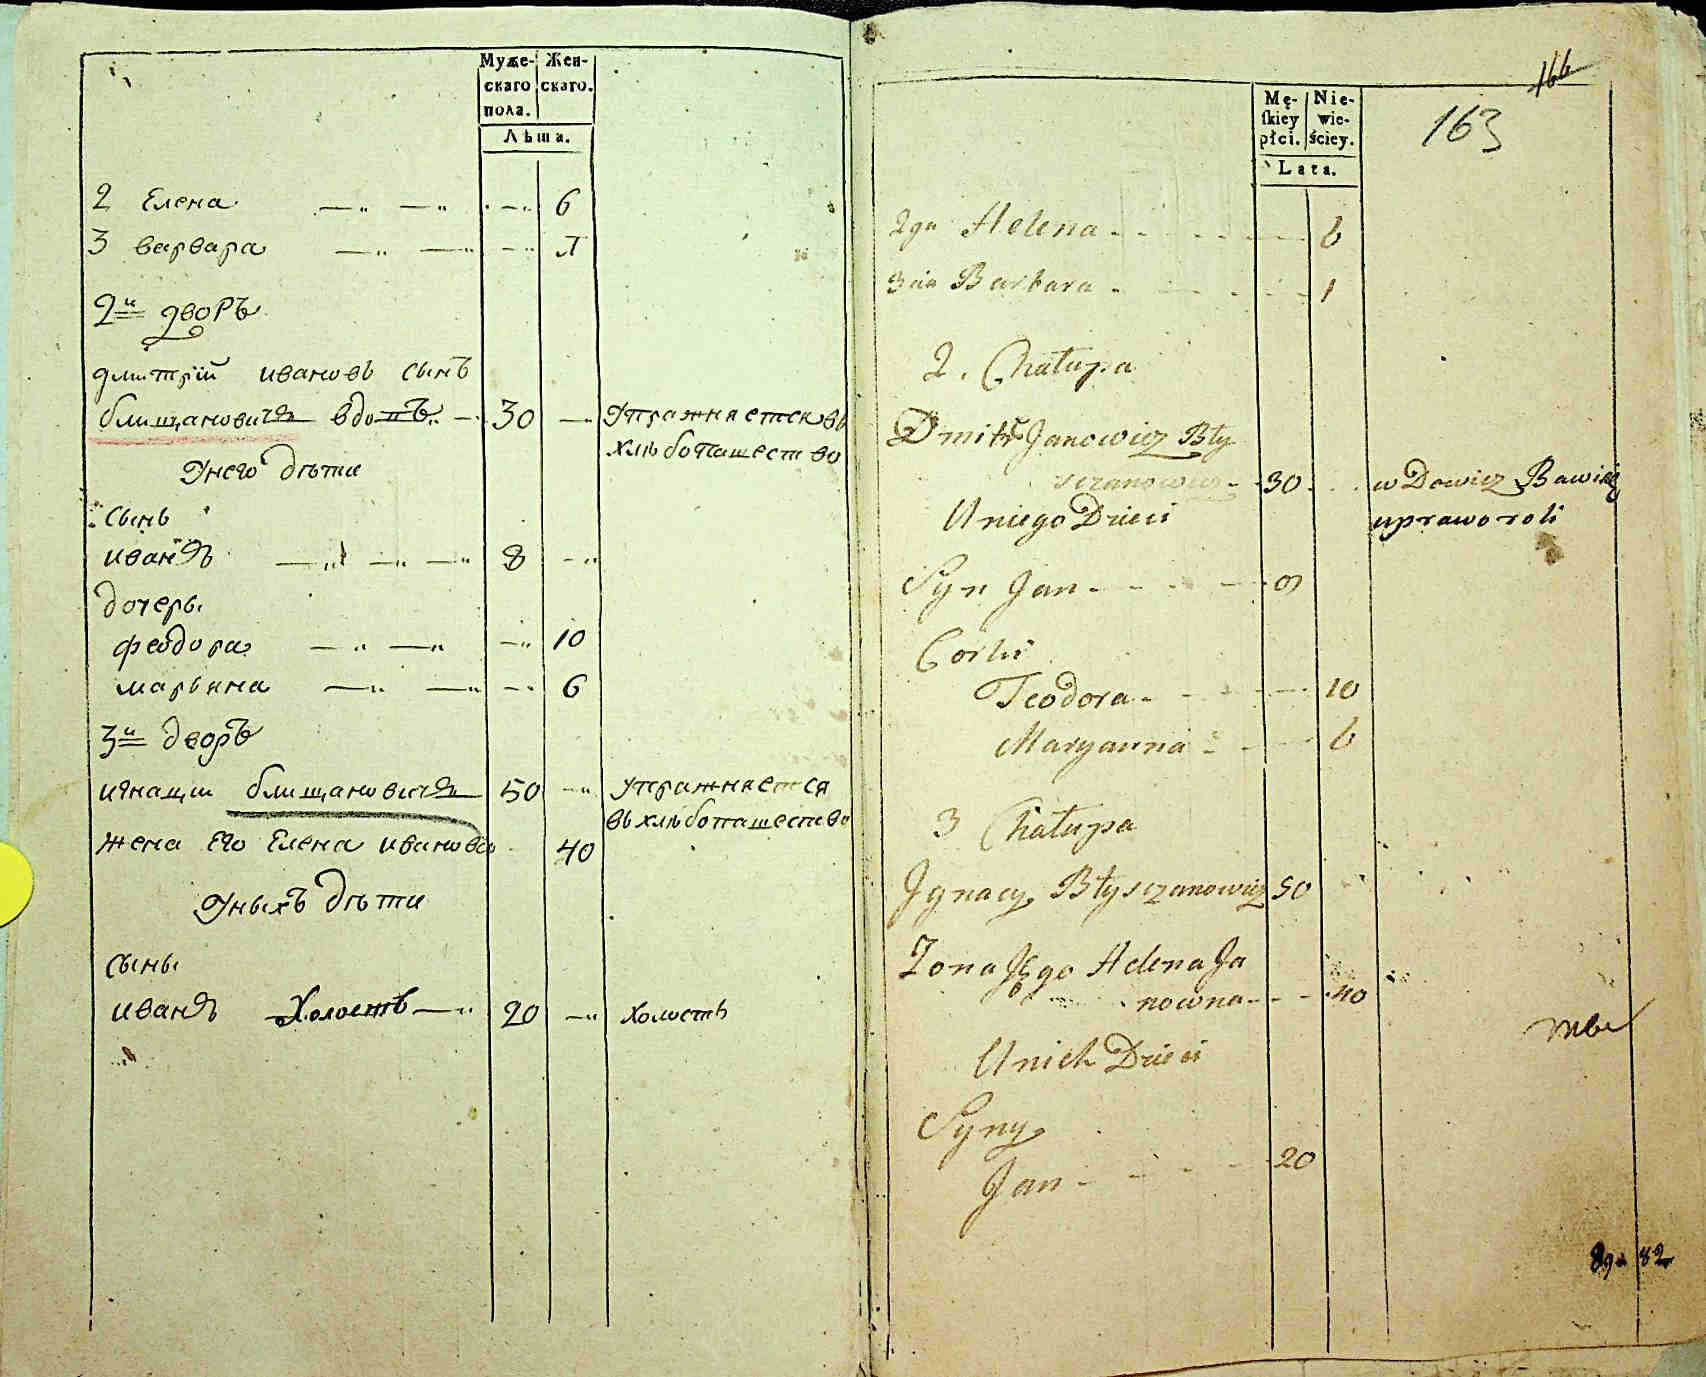 Муже-
скаго
пола.
Жен-
скаго.
Лѣта.
2 Елена 6
3 варвара 1
2й дворъ
дмитрїй ивановъ сынъ
блищановичъ вдовъ 30 Упражняется въ
хлѣбопашество
Унего дѣти
сынъ
иванъ 8
дочеры
феодора 10
марьяна 6
3й дворъ
игнацїи блищановичъ 50 упражняется
въ хлѣбопашество
жена его Елена иванова 40
Уныхъ дѣти
сыны
иванъ Холостъ 20 холостъ
166
163
Mę-
ſkiey
płci.
Nie-
wie-
ściey.
Lata.
2ga Helena 6
3cia Barbara 1
2. Chałupa
Dmitr Janowicz Bły
szczanowicz 30 w Dowiec Bawi się
uprawo roli
U niego Dzieci
Syn Jan 8
Corki
Teodora 10
Maryanna 6
3 Chałupa
Jgnacy Błyszczanowicz 50
Zona Jego Helena Ja
nowna 40
U nich Dzieci
Syny
Jan 20
82